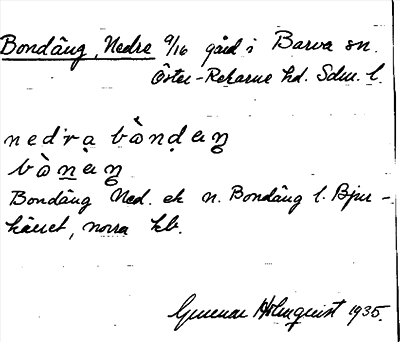 Bondäng, Nedre 9/16 gård i Barva sn.
Öster-Rekarne hd. Sdm. l.
nedra bòndaŋ
bònaŋ
Bondäng Ned. ek n. Bondäng l. Bjur-
käuet, norra kb.
Gunnar Holmquist 1935.